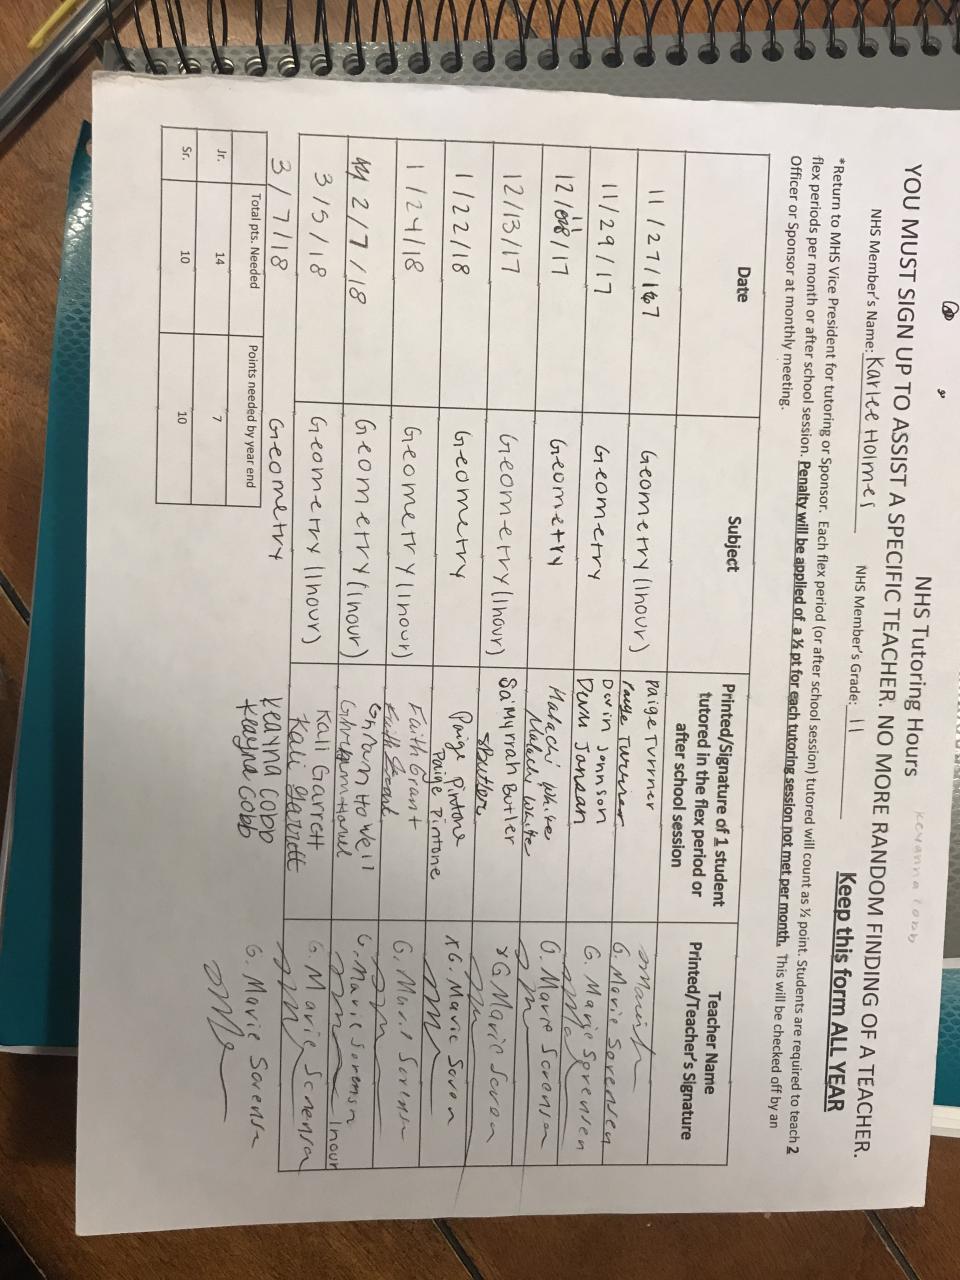 NHS Tutoring Hours
YOU MUST SIGN UP TO ASSIST A SPECIFIC TEACHER. NO MORE RANDOM FINDING OF A TEACHER.
NHS Member's Name: Karlee Holmes NHS Member's Grade: 11 Keep this form ALL YEAR
*Return to MHS Vice President for tutoring or Sponsor. Each flex period (or after school session) tutored will count as ½ point. Students are required to teach 2
flex periods per month or after school session. Penalty will be applied of a ½ pt for each tutoring session not met per month. This will be checked off by an
Officer or Sponsor at monthly meeting.
Date Subject Printed/Signature of 1 student tutored in the flex period or after school session Teacher Name Printed/Teacher's Signature
11/27/17 Geometry (1 hour) Paige Turrner
Paige Turrner G. Marie Sorensen
11/29/17 Geometry Dwin Johnson
G. Marie Sorensen
12/11/17 Geometry Malachi White
Malachi White G. Marie Sorensen
12/13/17 Geometry (1 hour) Sa'Myrrah Butler
SButler G. Marie Soron
1/22/18 Geometry Paige Pintone
Paige Pintone G. Marie Soron
1/24/18 Geometry (1 hour) Faith Grant
Faith Grant G. Marie Sorensen
2/7/18 Geometry (1 hour) Graham Howell
G. Marie Sorensen 1 hour
3/5/18 Geometry (1 hour) Kali Garrett
Kali Garrett G. Marie Sorensen
3/7/18 Geometry Keayna Cobb
Keayna Cobb G. Marie Sorensen
Total pts. Needed Points needed by year end
Jr. 14 7
Sr. 10 10